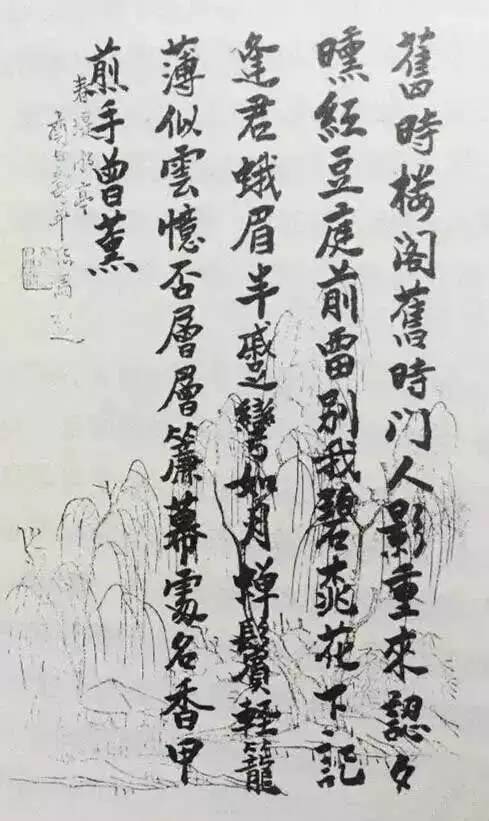 舊時楼阁舊時门人影重來認夕
曛紅豆庭前畱别我碧桃花下記
逢君蛾眉半蹙彎如月蝉鬢輕籠
薄似雲憶否層層簾幕處名香甲
煎手曾薰
春堤